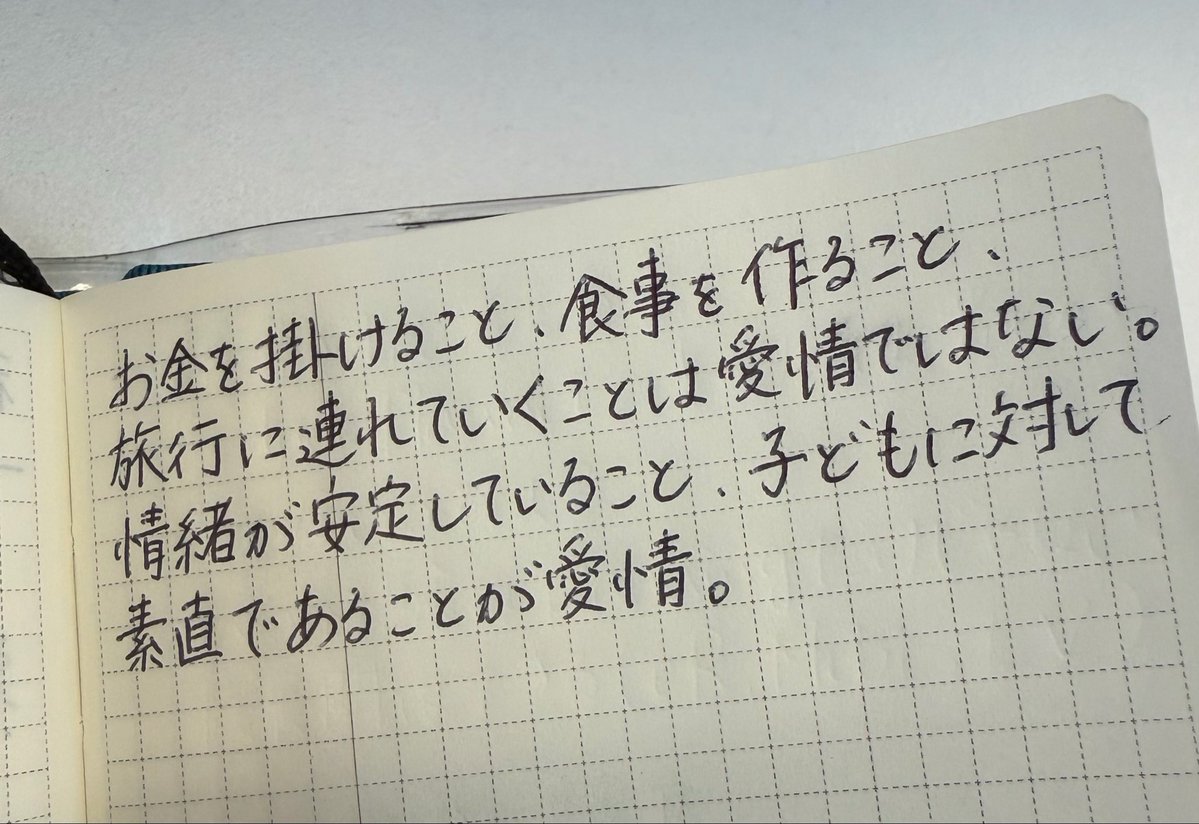 お金を掛けること、食事を作ること、
旅行に連れていくことは愛情ではない。
情緒が安定していること、子どもに対して
素直であることが愛情。